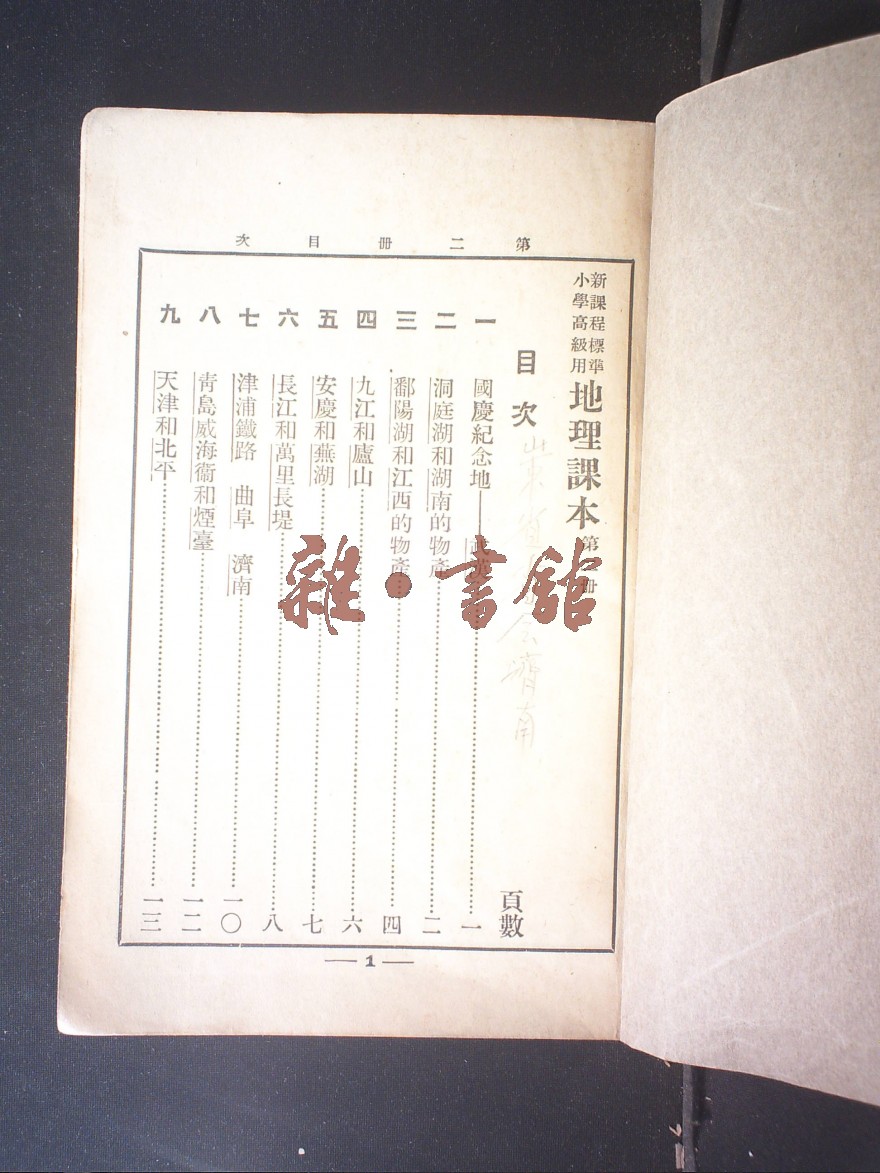 第二册目次
新課程標準
小學高級用
地理課本第二册
目次
頁數
一 國慶紀念地——武漢 一
二 洞庭湖和湖南的物產 二
三 鄱陽湖和江西的物產 四
四 九江和廬山 六
五 安慶和蕪湖 七
六 長江和萬里長堤 八
七 津浦鐵路 曲阜 濟南 一〇
八 青島威海衞和煙臺 一二
九 天津和北平 一三
濟南
雜·書館
— 1 —